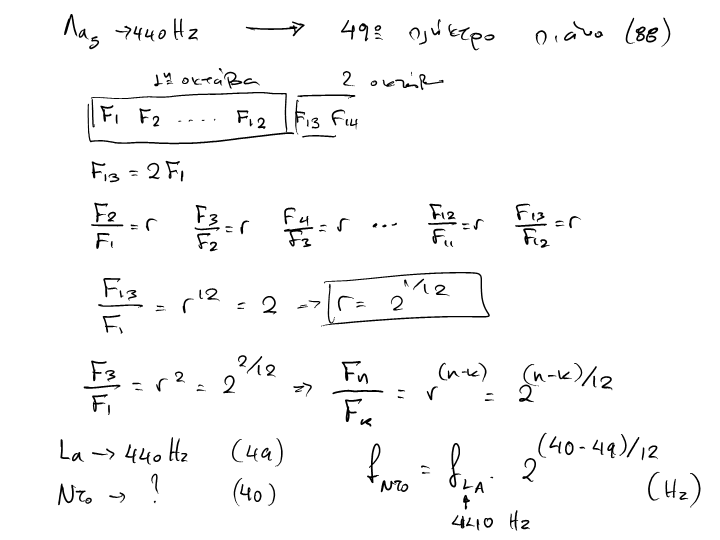 Λα₅ → 440 Hz ⟶ 49º πλήκτρο πιάνο (88)
1η οκτάβα 2 οκτάβ
F₁ F₂ .... F₁₂ F₁₃ F₁₄
F₁₃ = 2F₁
F₂/F₁ = r F₃/F₂ = r F₄/F₃ = r ... F₁₂/F₁₁ = r F₁₃/F₁₂ = r
F₁₃/F₁ = r¹² = 2 => r = 2^1/12
F₃/F₁ = r² = 2^2/12 => Fn/Fκ = r^(n-κ) = 2^(n-κ)/12
La → 440 Hz (49)
Ντο → ? (40)
f_Ντο = f_LA · 2^(40-49)/12 (Hz)
↑
440 Hz